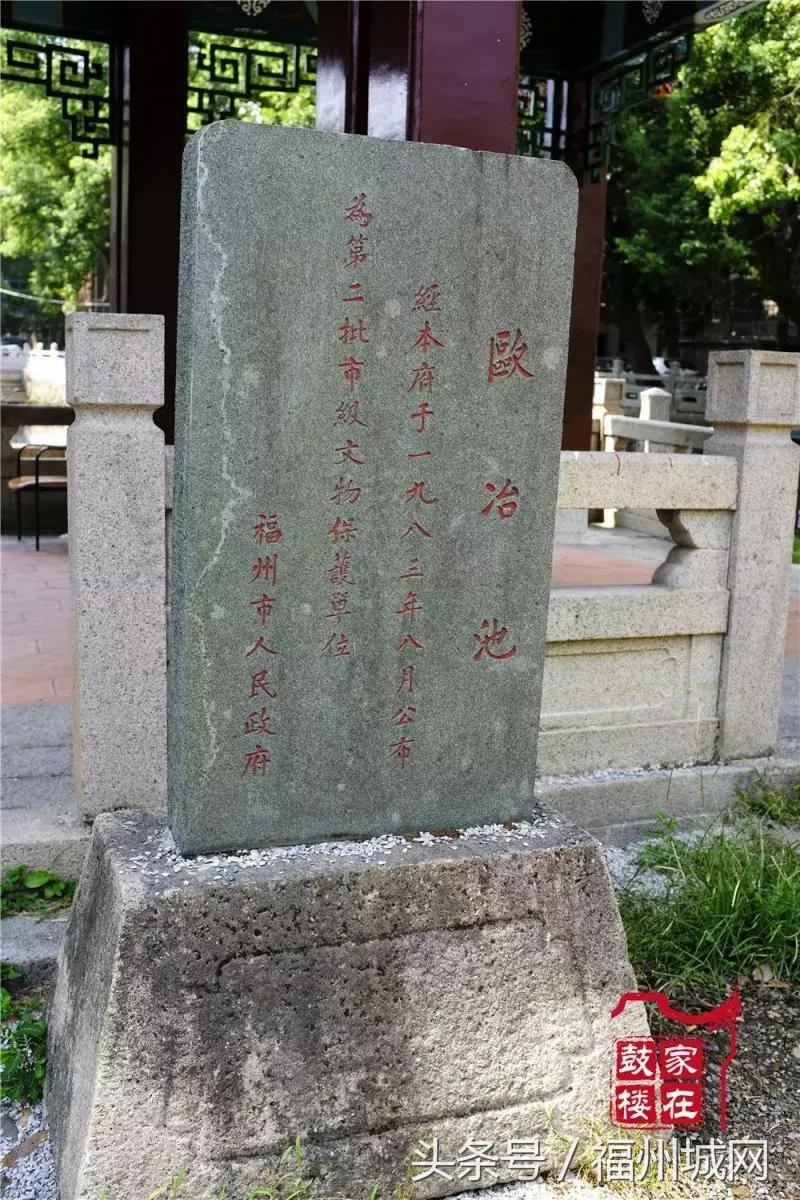 歐冶池
經本府于一九八三年八月公布
為第二批市級文物保護單位
福州市人民政府
家在
鼓楼
头条号／福州城网